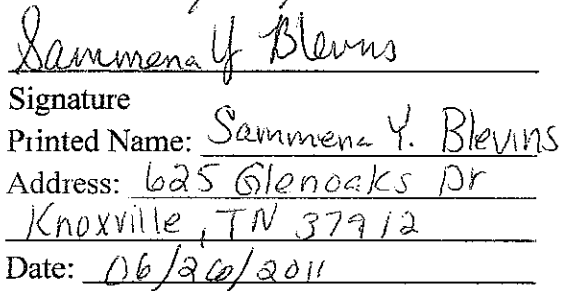 Sammena Y Blevins
Signature
Printed Name: Sammena Y. Blevins
Address: 625 Glenoaks Dr
Knoxville, TN 37912
Date: 06/26/2011